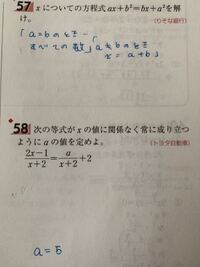 57 xについての方程式ax+b²=bx+a²を解け。
(りそな銀行)
「a=bのとき…
すべての数」「a≠bのとき
x=a+b」
58 次の等式がxの値に関係なく常に成り立つようにaの値を定めよ。
(トヨタ自動車)
(2x−1)/(x+2)=a/(x+2)+2
a=5